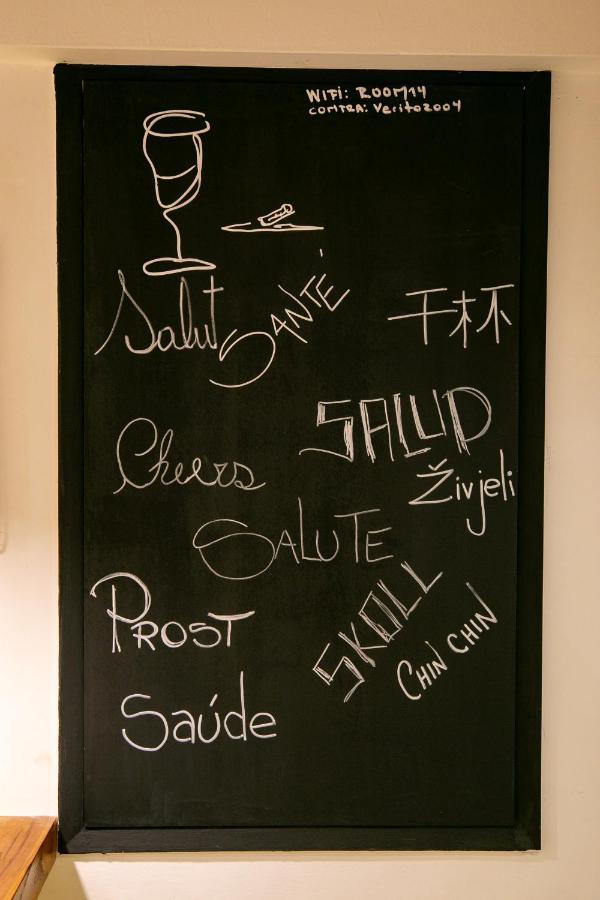 WIFI: ROOM14
CONTRA: Verito2004
Salut
SANTÉ
干杯
SALUD
Cheers
Živjeli
SALUTE
SKOLL
PROST
CHIN CHIN
Saúde